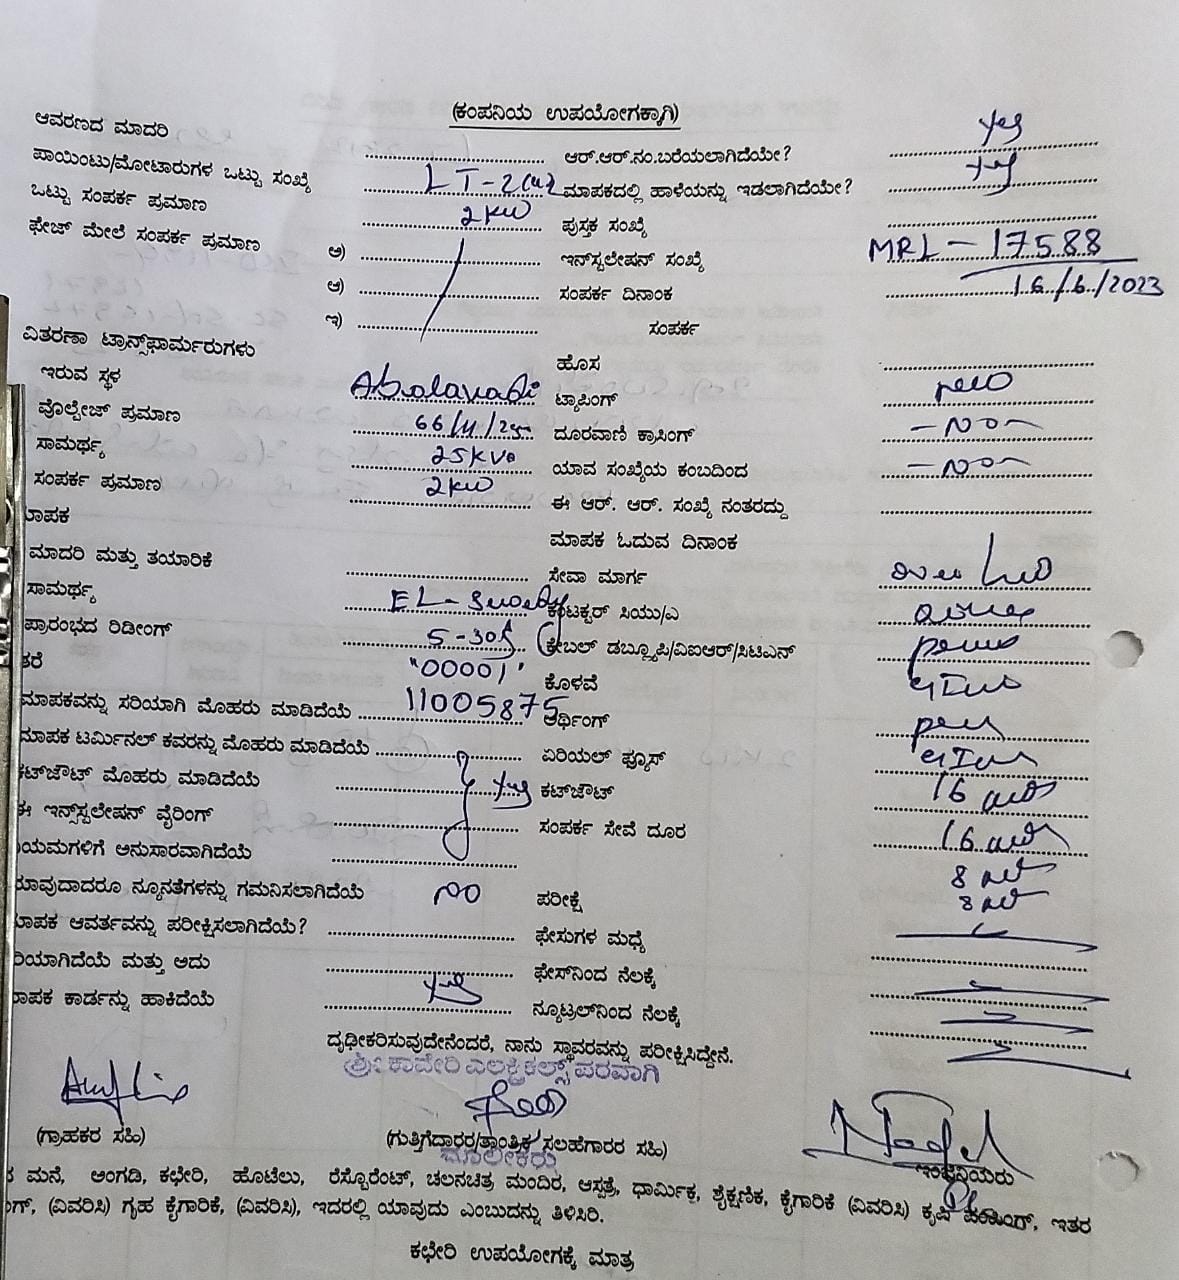 (ಕಂಪನಿಯ ಉಪಯೋಗಕ್ಕಾಗಿ)
ಆವರಣದ ಮಾದರಿ ಆರ್.ಆರ್.ನಂ.ಬರೆಯಲಾಗಿದೆಯೇ? Yes
ಪಾಯಿಂಟು/ಮೋಟಾರುಗಳ ಒಟ್ಟು ಸಂಖ್ಯೆ LT-2(a)2 ಮಾಪಕದಲ್ಲಿ ಹಾಳೆಯನ್ನು ಇಡಲಾಗಿದೆಯೇ? Yes
ಒಟ್ಟು ಸಂಪರ್ಕ ಪ್ರಮಾಣ 2KW ಪುಸ್ತಕ ಸಂಖ್ಯೆ
ಫೇಜ್ ಮೇಲೆ ಸಂಪರ್ಕ ಪ್ರಮಾಣ ಅ) ಇನ್‌ಸ್ಟಲೇಷನ್ ಸಂಖ್ಯೆ MRL-17588
ಆ) ಸಂಪರ್ಕ ದಿನಾಂಕ 16/6/2023
ಇ) ಸಂಪರ್ಕ
ವಿತರಣಾ ಟ್ರಾನ್ಸ್‌ಫಾರ್ಮರುಗಳು ಹೊಸ
ಇರುವ ಸ್ಥಳ Abalavadi ಟ್ಯಾಪಿಂಗ್ new
ವೊಲ್ಟೇಜ್ ಪ್ರಮಾಣ 66/11/ ದೂರವಾಣಿ ಕ್ರಾಸಿಂಗ್ -No-
ಸಾಮರ್ಥ್ಯ 25KVA ಯಾವ ಸಂಖ್ಯೆಯ ಕಂಬದಿಂದ -No-
ಸಂಪರ್ಕ ಪ್ರಮಾಣ 2KW ಈ ಆರ್. ಆರ್. ಸಂಖ್ಯೆ ನಂತರದ್ದು
ಮಾಪಕ ಓದುವ ದಿನಾಂಕ
ಮಾದರಿ ಮತ್ತು ತಯಾರಿಕೆ ಸೇವಾ ಮಾರ್ಗ
ಸಾಮರ್ಥ್ಯ EL-Sewedy ಕಂಡಕ್ಟರ್ ಸಿಯು/ಎ
ಪ್ರಾರಂಭದ ರಿಡೀಂಗ್ 5-30A ಕೇಬಲ್ ಡಬ್ಲ್ಯೂಪಿ/ವಿಐಆರ್/ಸಿಟಿಎನ್
"00001" ಕೊಳವೆ
ಮಾಪಕವನ್ನು ಸರಿಯಾಗಿ ಮೊಹರು ಮಾಡಿದೆಯೆ 11005875 ಅರ್ಥಿಂಗ್
ಮಾಪಕ ಟರ್ಮಿನಲ್ ಕವರನ್ನು ಮೊಹರು ಮಾಡಿದೆಯೆ ಏರಿಯಲ್ ಫ್ಯೂಸ್
ಕಟ್‌ಔಟ್ ಮೊಹರು ಮಾಡಿದೆಯೆ Yes ಕಟ್‌ಔಟ್ 16
ಈ ಇನ್‌ಸ್ಟಲೇಷನ್ ವೈರಿಂಗ್ ಸಂಪರ್ಕ ಸೇವೆ ದೂರ 16
ಯಮಗಳಿಗೆ ಅನುಸಾರವಾಗಿದೆಯೆ 8
ಯಾವುದಾದರೂ ನ್ಯೂನತೆಗಳನ್ನು ಗಮನಿಸಲಾಗಿದೆಯೆ No ಪರೀಕ್ಷೆ 8
ಮಾಪಕ ಆವರ್ತವನ್ನು ಪರೀಕ್ಷಿಸಲಾಗಿದೆಯೆ? ಫೇಸುಗಳ ಮಧ್ಯೆ
ರಿಯಾಗಿದೆಯೆ ಮತ್ತು ಅದು ಫೇಸ್‌ನಿಂದ ನೆಲಕ್ಕೆ
ಮಾಪಕ ಕಾರ್ಡನ್ನು ಹಾಕಿದೆಯೆ Yes ನ್ಯೂಟ್ರಲ್‌ನಿಂದ ನೆಲಕ್ಕೆ
ದೃಢೀಕರಿಸುವುದೇನೆಂದರೆ, ನಾನು ಸ್ಥಾವರವನ್ನು ಪರೀಕ್ಷಿಸಿದ್ದೇನೆ.
ಶ್ರೀ ಕಾವೇರಿ ಎಲೆಕ್ಟ್ರಿಕಲ್ಸ್ ಪರವಾಗಿ
(ಗ್ರಾಹಕರ ಸಹಿ) (ಗುತ್ತಿಗೆದಾರರ/ತ್ರಾಂತ್ರಿಕ ಸಲಹೆಗಾರರ ಸಹಿ) ಇಂಜಿನಿಯರು
ಮಾಲೀಕರು
ಮನೆ, ಅಂಗಡಿ, ಕಛೇರಿ, ಹೊಟೆಲು, ರೆಸ್ಟೊರೆಂಟ್, ಚಲನಚಿತ್ರ ಮಂದಿರ, ಆಸ್ಪತ್ರೆ, ಧಾರ್ಮಿಕ, ಶೈಕ್ಷಣಿಕ, ಕೈಗಾರಿಕೆ (ವಿವರಿಸಿ) ಕೃಷಿ ಪಂಪಿಂಗ್, ಇತರ
ಗ್, (ವಿವರಿಸಿ) ಗೃಹ ಕೈಗಾರಿಕೆ, (ವಿವರಿಸಿ), ಇದರಲ್ಲಿ ಯಾವುದು ಎಂಬುದನ್ನು ತಿಳಿಸಿರಿ.
ಕಛೇರಿ ಉಪಯೋಗಕ್ಕೆ ಮಾತ್ರ